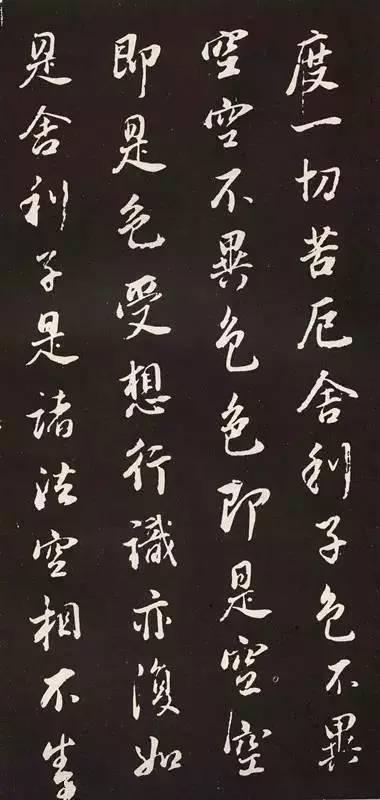 度一切苦厄舍利子色不異
空空不異色色即是空空
即是色受想行識亦復如
是舍利子是諸法空相不生